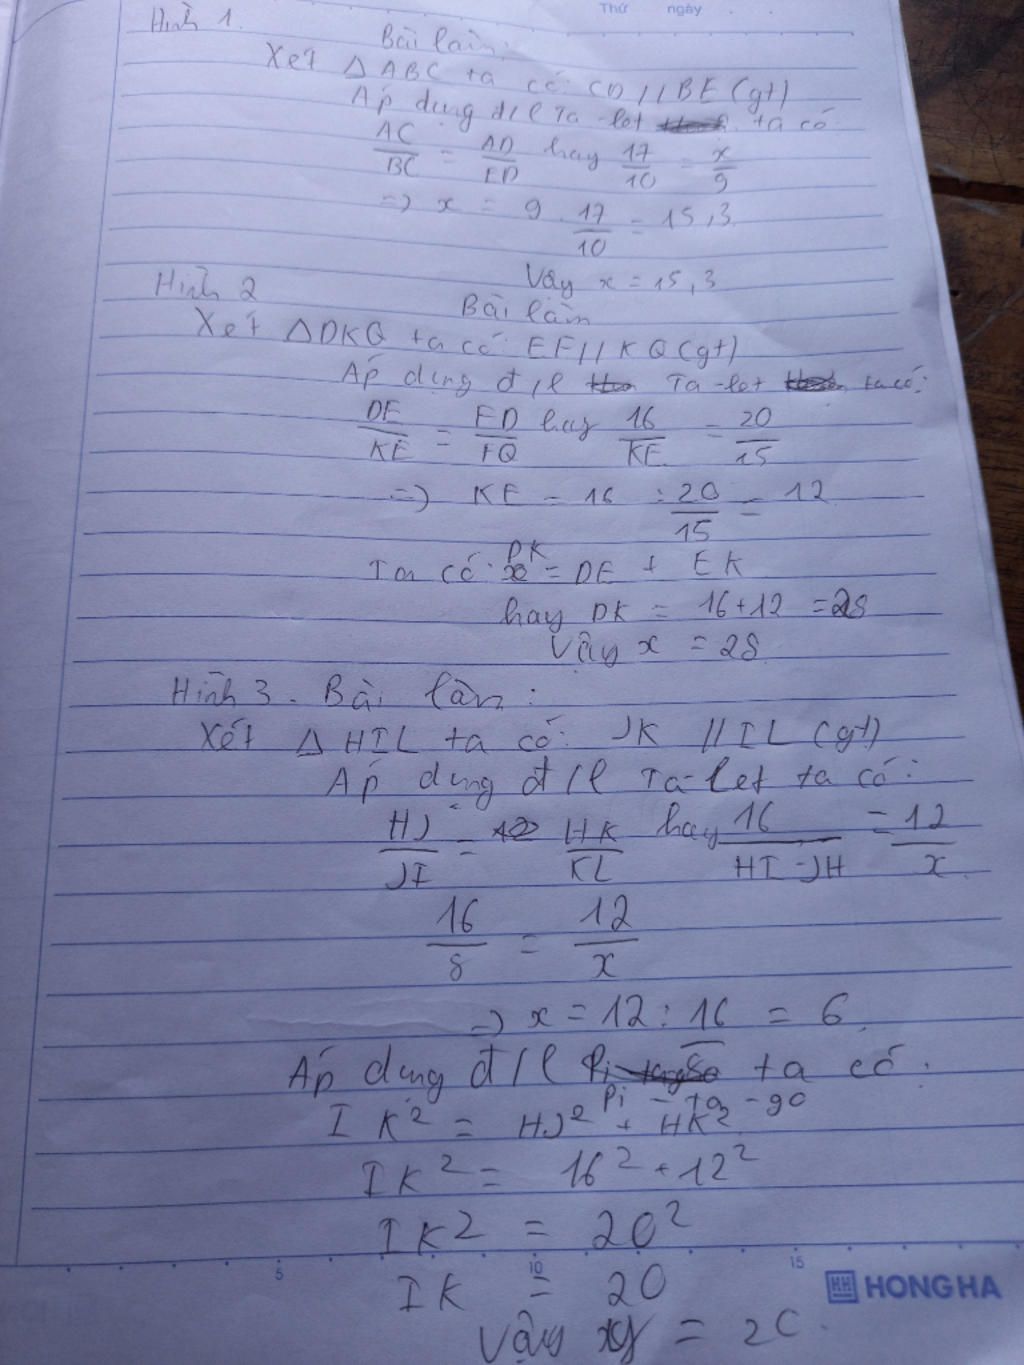 Thứ ngày
Hình 1.
Bài làm:
Xét △ABC ta có: CD // BE (gt)
Áp dụng đ/l Ta-let ta có
AC/BC = AD/ED hay 17/10 = x/9
=> x = 9 . 17/10 = 15,3
Vây x = 15,3
Hình 2
Bài làm
Xét △DKQ ta có EF // KQ (gt)
Áp dụng đ/l Ta-let ta có:
DE/KE = FD/FQ hay 16/KE = 20/15
=> KE = 16 : 20/15 = 12
Ta có: DK = DE + EK
hay DK = 16+12 = 28
Vây x = 28
Hình 3. Bài làm:
Xét △HIL ta có: JK // IL (gt)
Áp dụng đ/l Ta-let ta có:
HJ/JI = HK/KL hay 16/HI-JH = 12/x
16/8 = 12/x
=> x = 12 : 16/8 = 6
Áp dụng đ/l Pi-ta-go ta có:
IK² = HJ² + HK²
IK² = 16² + 12²
IK² = 20²
IK = 20
Vậy y = 20.
5 10 15
HH HONG HA